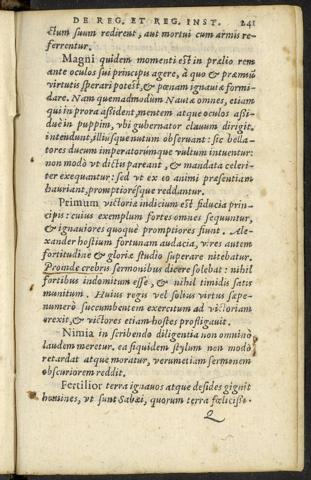 DE REG. ET REG. INST. 241
ctum suum redirent, aut mortui cum armis re-
ferrentur.
Magni quidem momenti est in prælio rem
ante oculos sui principis agere, à quo & præmiũ
virtutis sperari potest, & pœnam ignauiæ formi-
dare. Nam quemadmodum Nautæ omnes, etiam
qui in prora assident, mentem atque oculos assi-
duè in puppim, vbi gubernator clauum dirigit,
intendunt, illiusque nutum obseruant: sic bella-
tores ducum imperatorúmque vultum intuentur:
non modò vt dictis pareant, & mandata celeri-
ter exequantur: sed vt ex eo animi præsentiam
hauriant, promptiorésque reddantur.
Primum victoriæ indicium est fiducia prin-
cipis: cuius exemplum fortes omnes sequuntur,
& ignauiores quoquè promptiores fiunt. Ale-
xander hostium fortunam audacia, vires autem
fortitudine & gloriæ studio superare nitebatur.
Proinde crebris sermonibus dicere solebat: nihil
fortibus indomitum esse, & nihil timidis satis
munitum. Huius regis vel solius virtus sæpe-
numerò succumbentem exercitum ad victoriam
erexit, & victores etiam hostes profligauit.
Nimia in scribendo diligentia non omninò
laudem meretur. ea siquidem stylum non modò
retardat atque moratur, verumetiam sermonem
obscuriorem reddit.
Fertilior terra ignauos atque desides gignit
homines, vt sunt Sabæi, quorum terra fœliciss-
Q